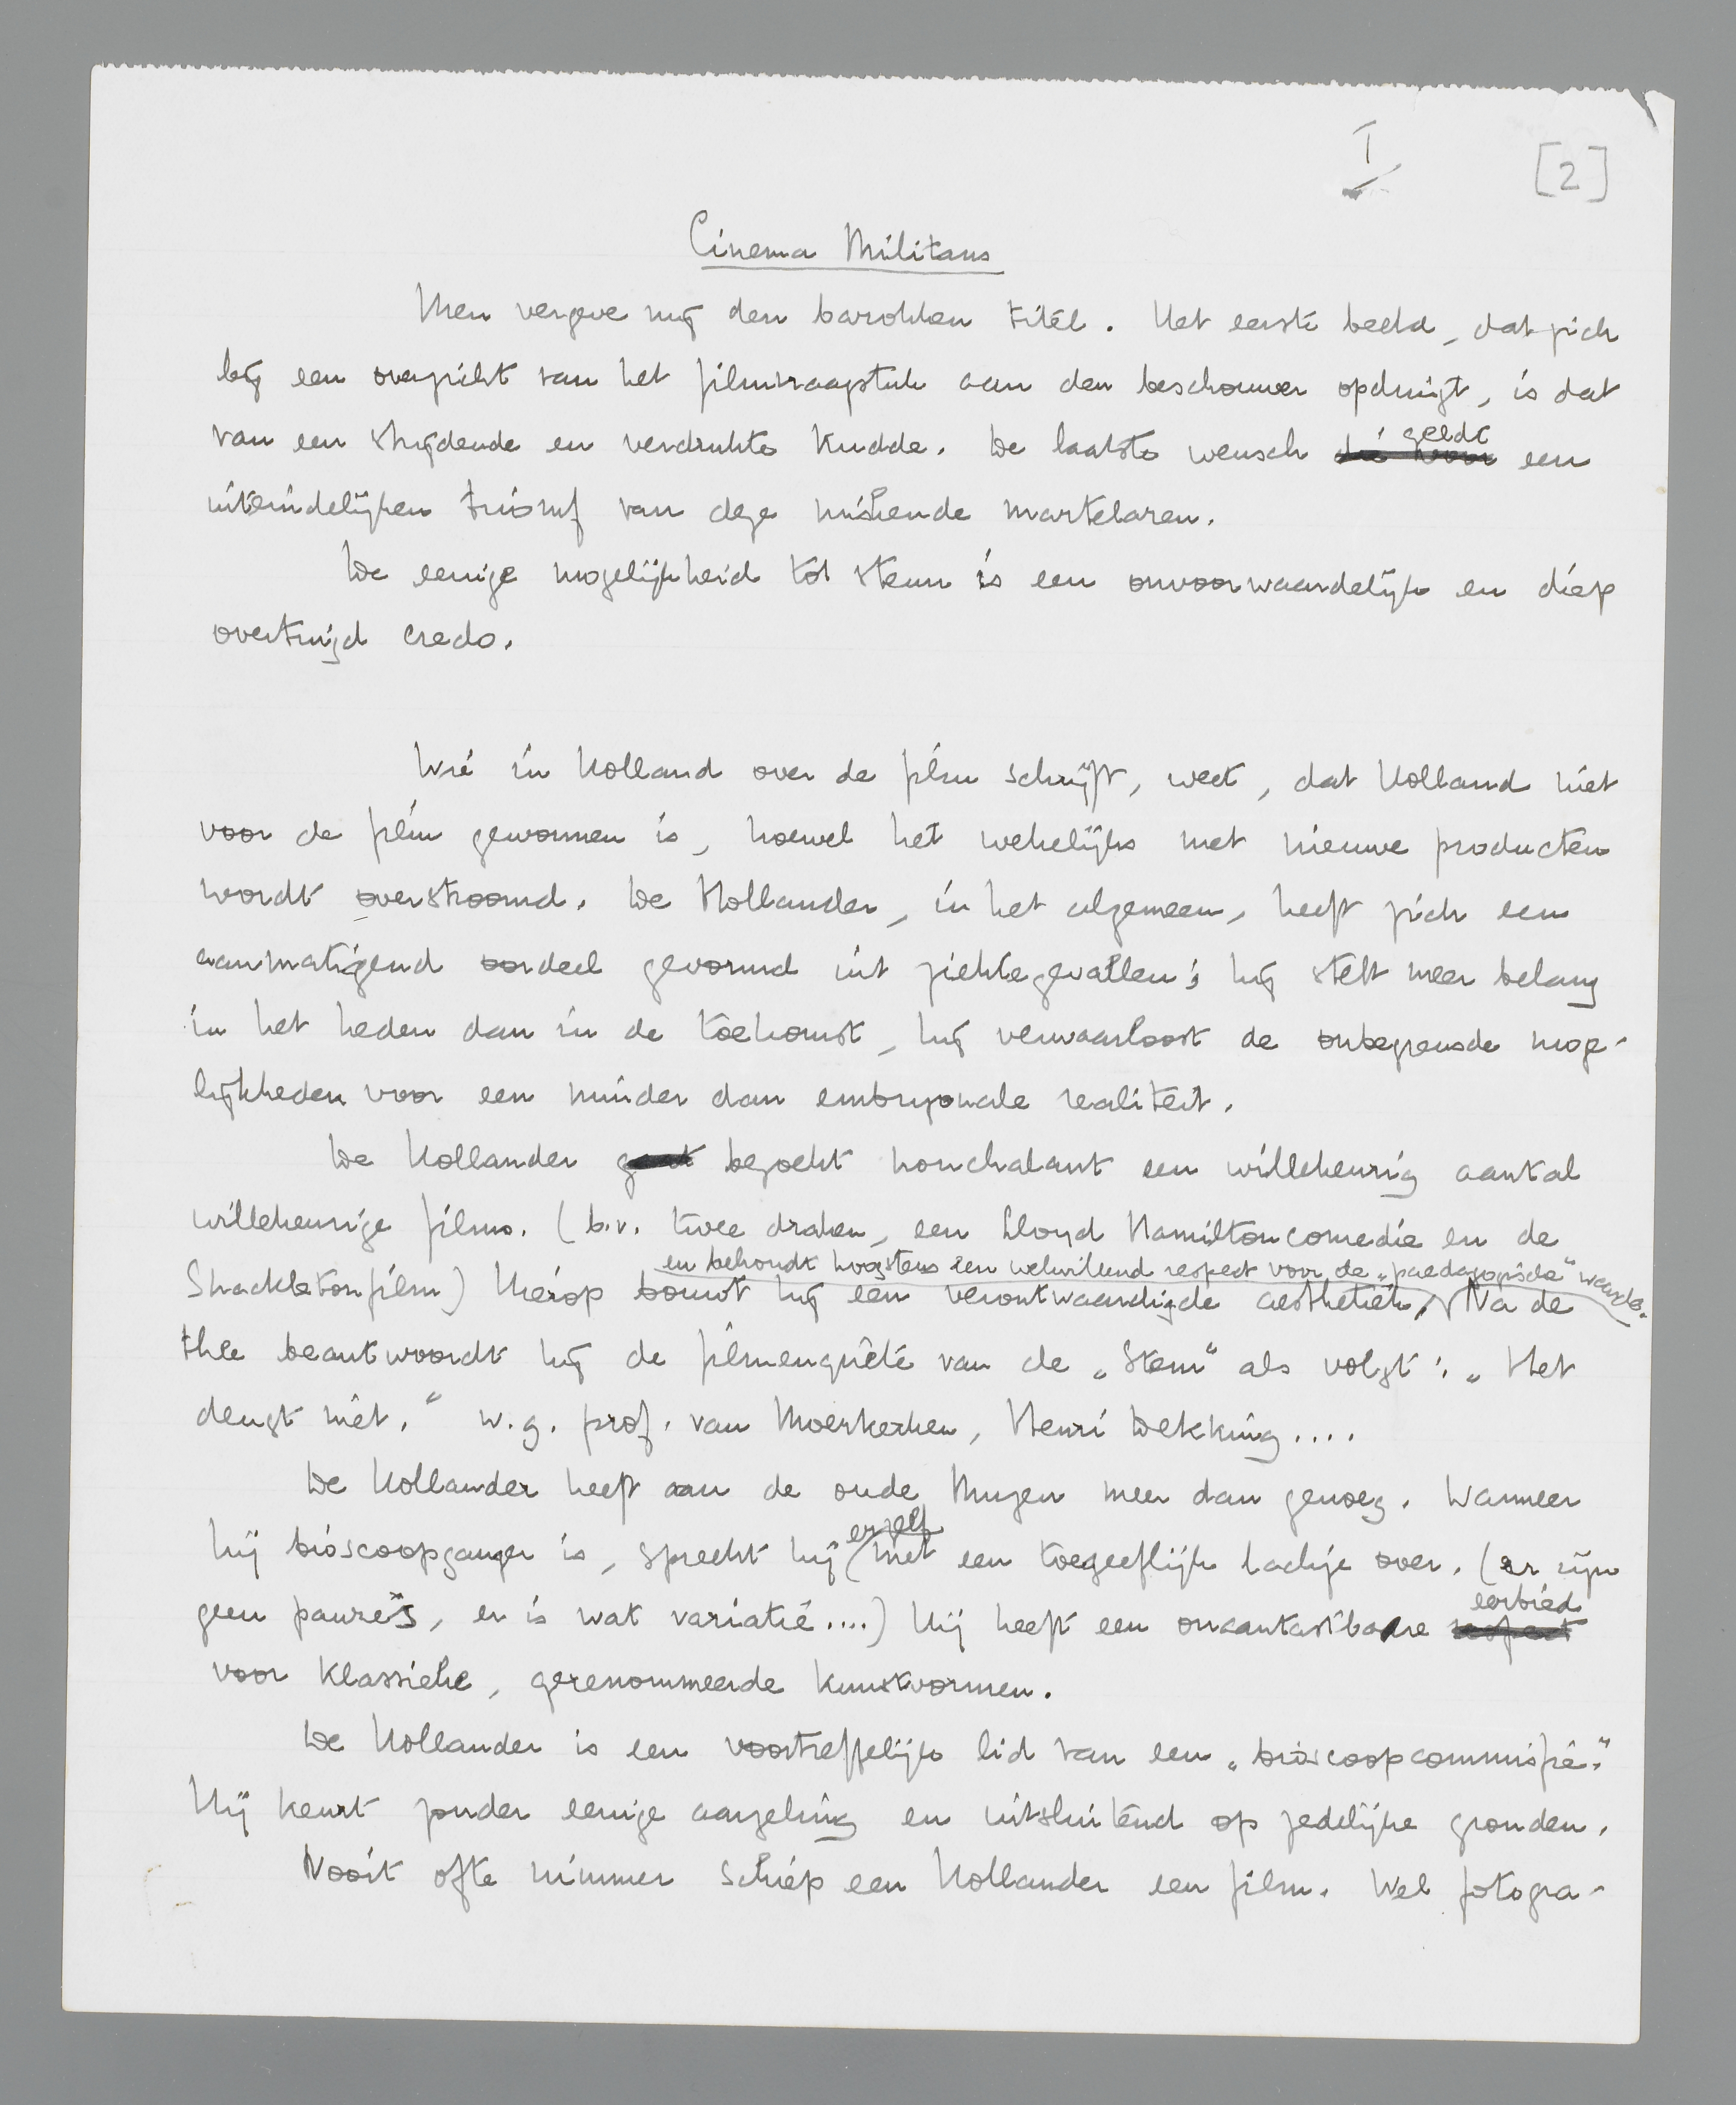 I
[2]
Cinema Militans
Men vergeve mij den barokken titel. Het eerste beeld, dat zich
bij een overzicht van het filmvraagstuk aan den beschouwer opdringt, is dat
van een strijdende en verdrukte kudde. De laatste wensch geldt een
uiteindelijken triomf van deze huilende martelaren.
De eenige mogelijkheid tot steun is een onvoorwaardelijk en diep
overtuigd credo.
Wie in Holland over de film schrijft, weet, dat Holland niet
voor de film gewonnen is, hoewel het wekelijks met nieuwe producten
wordt overstroomd. De Hollander, in het algemeen, heeft zich een
aanmatigend oordeel gevormd uit ziektegevallen; hij stelt meer belang
in het heden dan in de toekomst, hij verwaarloost de onbegrensde moge-
lijkheden voor een minder dan embryonale realiteit.
De Hollander bezoekt nonchalant een willekeurig aantal
willekeurige films. (b.v. twee draken, een Lloyd Hamiltoncomedie en de
en behoudt hoogstens een welwillend respect voor de „paedagogische" waarde.
Shackletonfilm) Hierop bouwt hij een verontwaardigde aesthetiek, Na de
thee beantwoordt hij de filmenquête van de „Stem" als volgt: „Het
deugt niet." w.g. prof. van Moerkerken, Henri Dekking....
De Hollander heeft aan de oude Muzen meer dan genoeg. Wanneer
hij bioscoopganger is, spreekt hij er zelf met een toegeeflijk lachje over. (er zijn
geen pauze's, er is wat variatie....) Hij heeft een onaantastbare eerbied
voor klassieke, gerenommeerde kunstvormen.
De Hollander is een voortreffelijk lid van een „bioscoopcommissie."
Hij keurt zonder eenige aarzeling en uitsluitend op zedelijke gronden.
Nooit ofte nimmer schiep een Hollander een film. Wel fotogra-